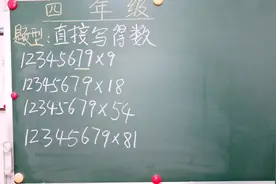 四年级
题型:直接写得数
12345679×9
12345679×18
12345679×54
12345679×81